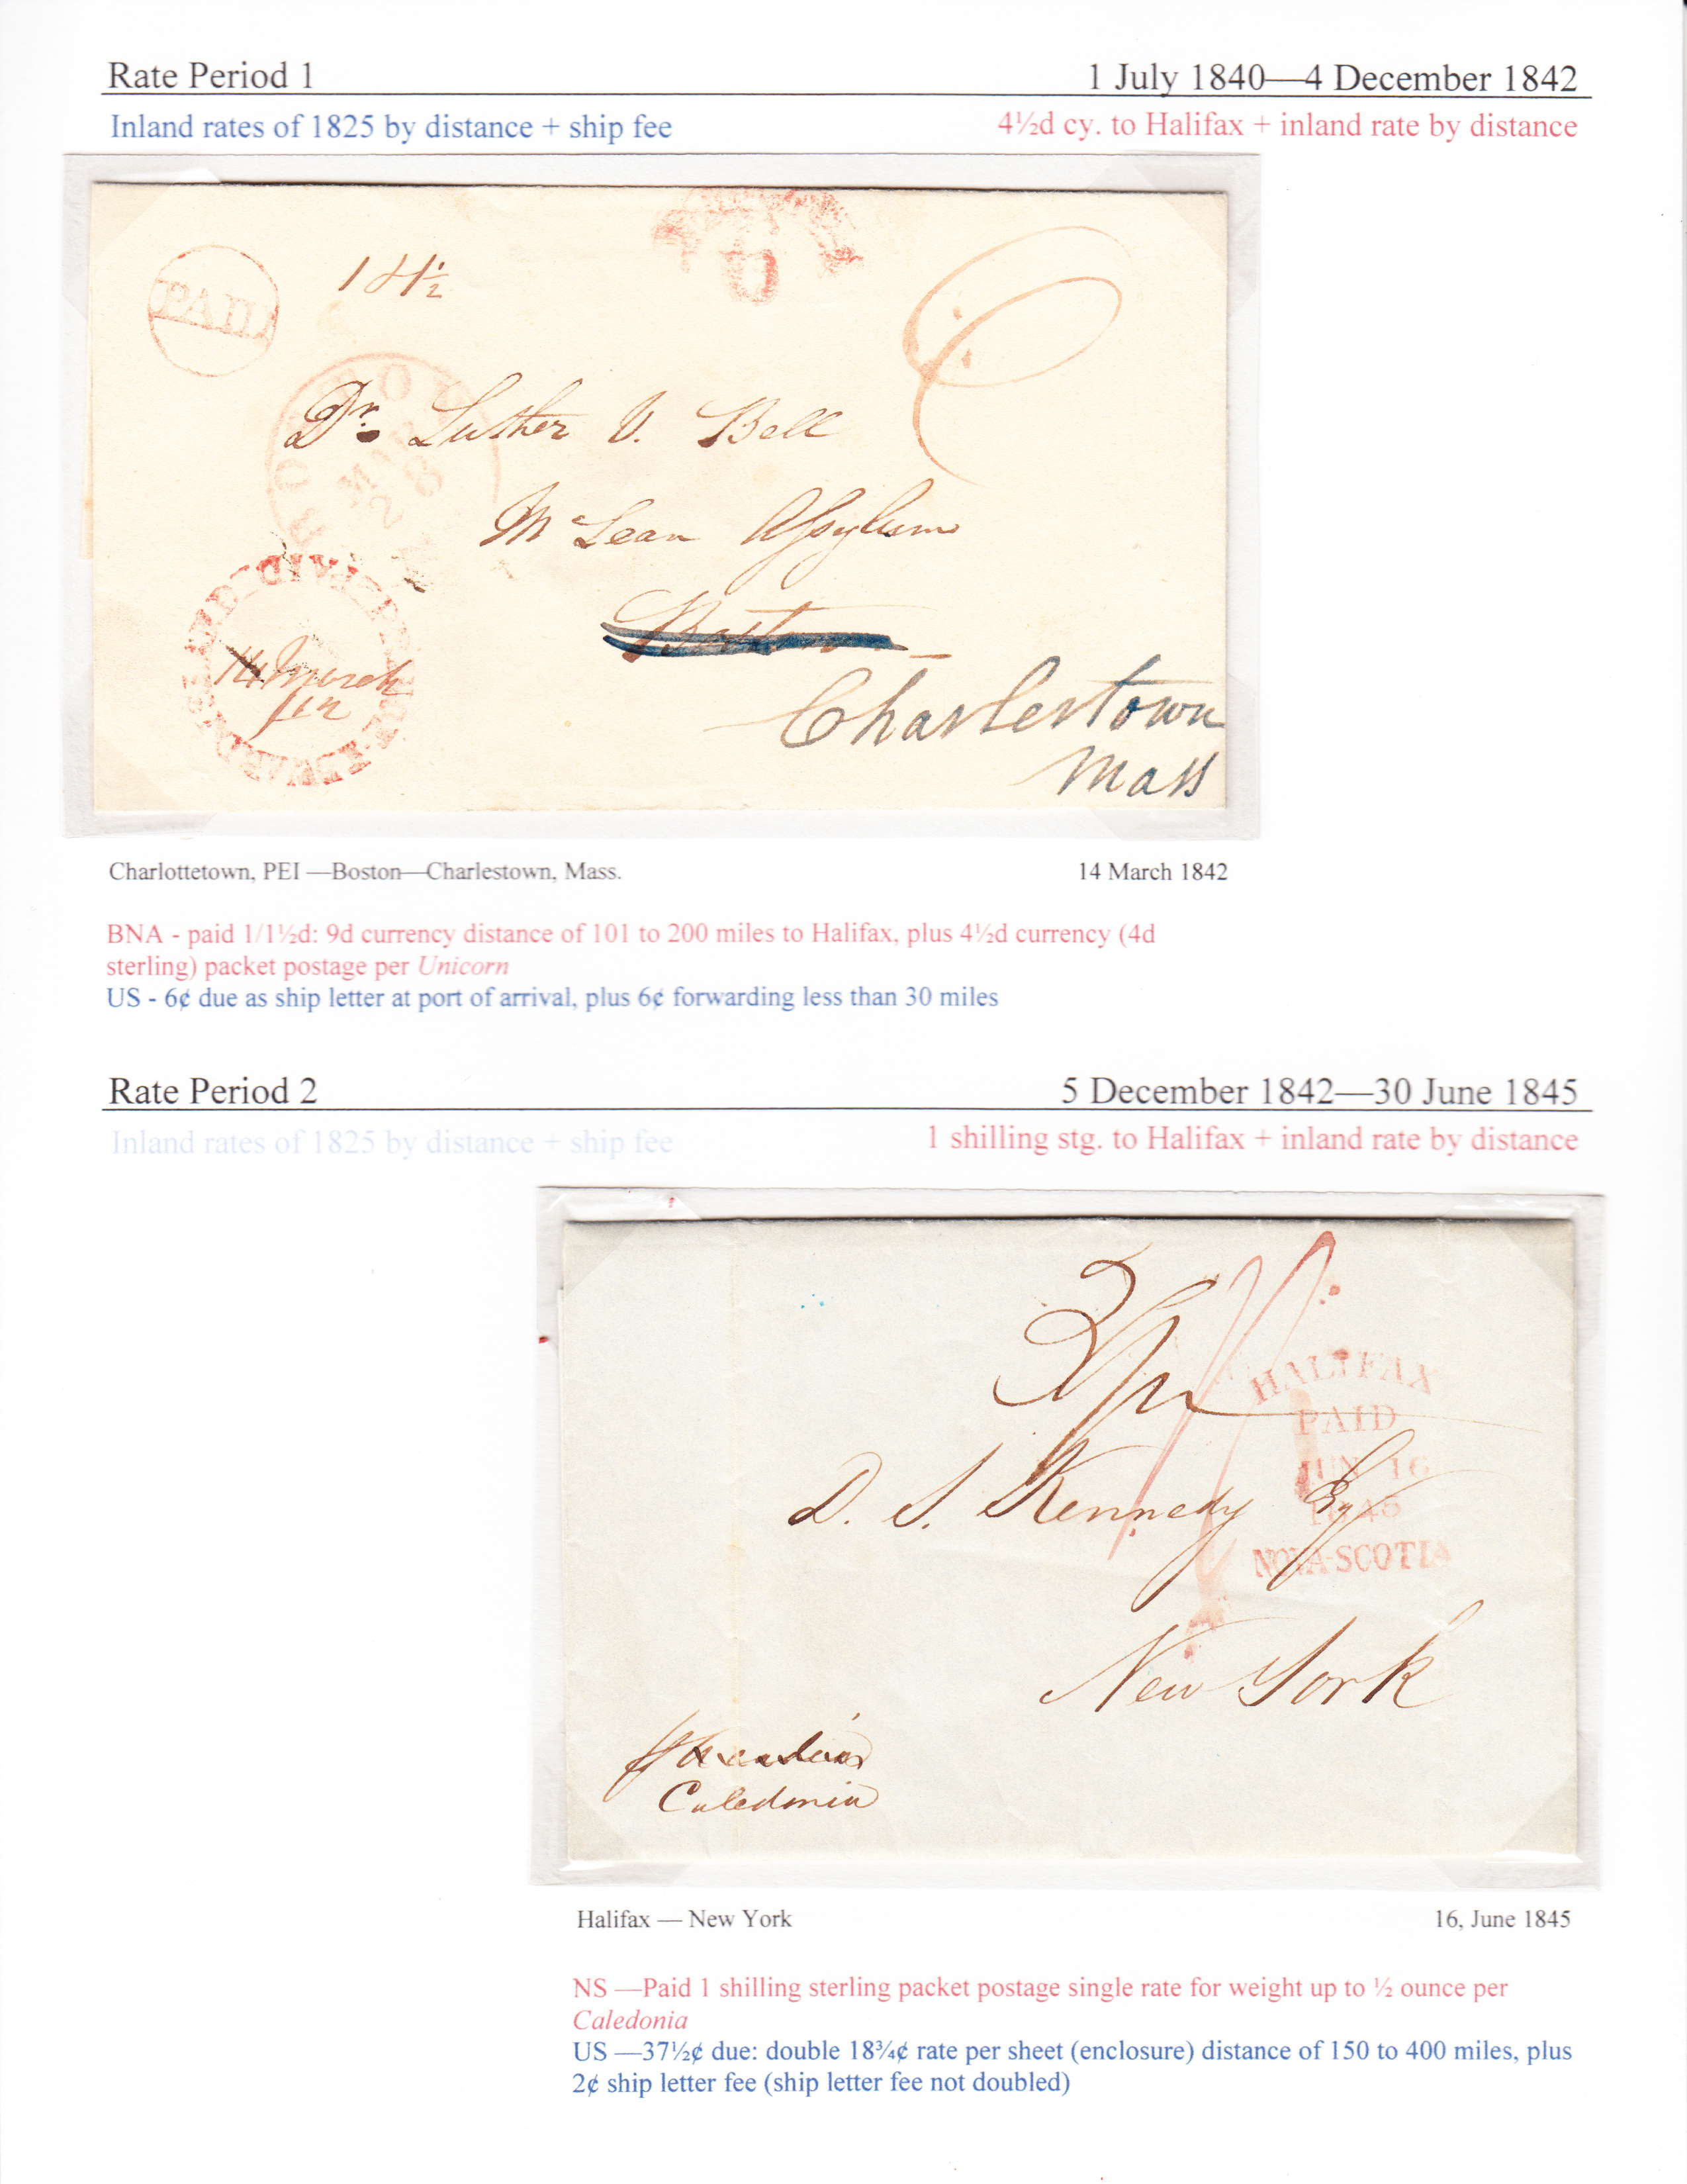 Rate Period 1 1 July 1840—4 December 1842
Inland rates of 1825 by distance + ship fee 4½d cy. to Halifax + inland rate by distance
PAID
1 8
6
Dr. Luther V. Bell
BOSTON
MAR
28
McLean Assylum
Boston
PAID
14 March
Charlestown
Mass
Charlottetown, PEI —Boston—Charlestown, Mass. 14 March 1842
BNA - paid 1/1½d: 9d currency distance of 101 to 200 miles to Halifax, plus 4½d currency (4d
sterling) packet postage per Unicorn
US - 6¢ due as ship letter at port of arrival, plus 6¢ forwarding less than 30 miles
Rate Period 2 5 December 1842—30 June 1845
Inland rates of 1825 by distance + ship fee 1 shilling stg. to Halifax + inland rate by distance
HALIFAX
PAID
JUN 16
1845
NOVA-SCOTIA
D. S. Kennedy Esq
New York
Caledonia
Halifax — New York 16, June 1845
NS —Paid 1 shilling sterling packet postage single rate for weight up to ½ ounce per
Caledonia
US —37½¢ due: double 18¾¢ rate per sheet (enclosure) distance of 150 to 400 miles, plus
2¢ ship letter fee (ship letter fee not doubled)